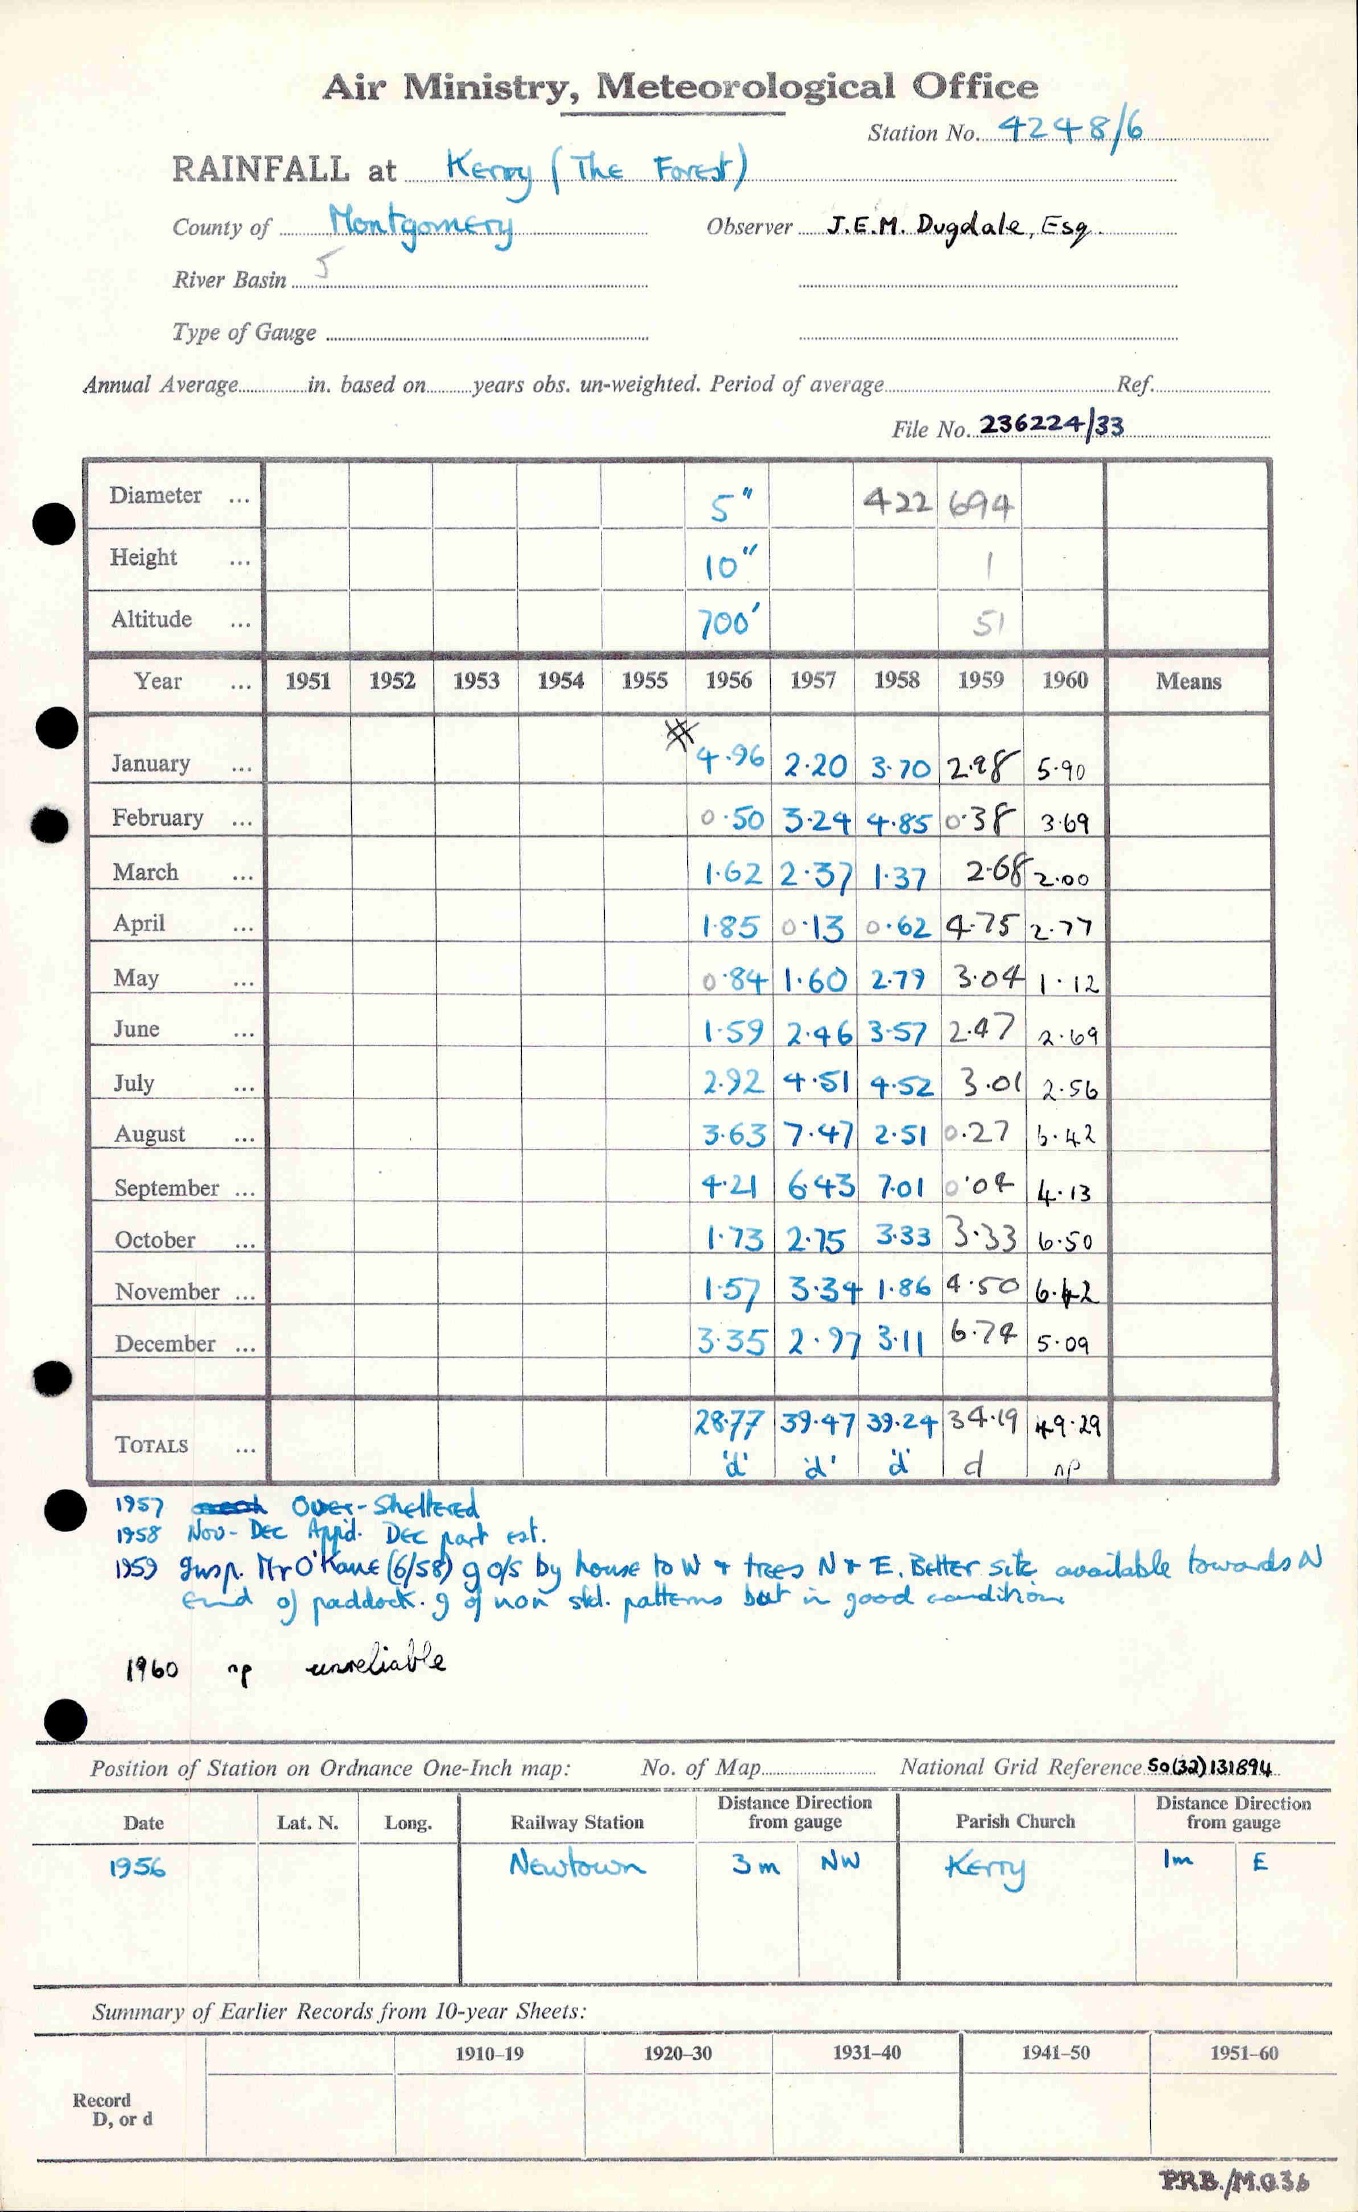 Air Ministry, Meteorological Office
Station No. 4248/6
RAINFALL at Kerry (The Forest)
County of Montgomery Observer J.E.M. Dugdale, Esq.
River Basin 5
Type of Gauge
Annual Average in. based on years obs. un-weighted. Period of average Ref.
File No. 236224/33
Diameter ... 5" 422 694
Height ... 10" 1
Altitude ... 700' 51
Year ... 1951 1952 1953 1954 1955 1956 1957 1958 1959 1960 Means
January ... 4.96 2.20 3.70 2.98 5.90
February ... 0.50 3.24 4.85 0.38 3.69
March ... 1.62 2.37 1.37 2.68 2.00
April ... 1.85 0.13 0.62 4.75 2.77
May ... 0.84 1.60 2.79 3.04 1.12
June ... 1.59 2.46 3.57 2.47 2.69
July ... 2.92 4.51 4.52 3.01 2.56
August ... 3.63 7.47 2.51 0.27 6.42
September ... 4.21 6.43 7.01 0.04 4.13
October ... 1.73 2.75 3.33 3.33 6.50
November ... 1.57 3.34 1.86 4.50 6.42
December ... 3.35 2.97 3.11 6.74 5.09
TOTALS ... 28.77 39.47 39.24 34.19 49.29
'd' 'd' 'd' d np
1957 Over-Sheltered
1958 Nov-Dec Appd. Dec part est.
1959 Insp. Mr O'Kane (6/58) g o/s by house to W + trees N + E. Better site available towards N
End of paddock. g of non std. patterns but in good condition
1960 np unreliable
Position of Station on Ordnance One-Inch map: No. of Map National Grid Reference SO(32)131894
Date Lat. N. Long. Railway Station Distance Direction from gauge Parish Church Distance Direction from gauge
1956 Newtown 3m NW Kerry 1m E
Summary of Earlier Records from 10-year Sheets:
1910–19 1920–30 1931–40 1941–50 1951–60
Record
D, or d
P.R.B./M.O.36